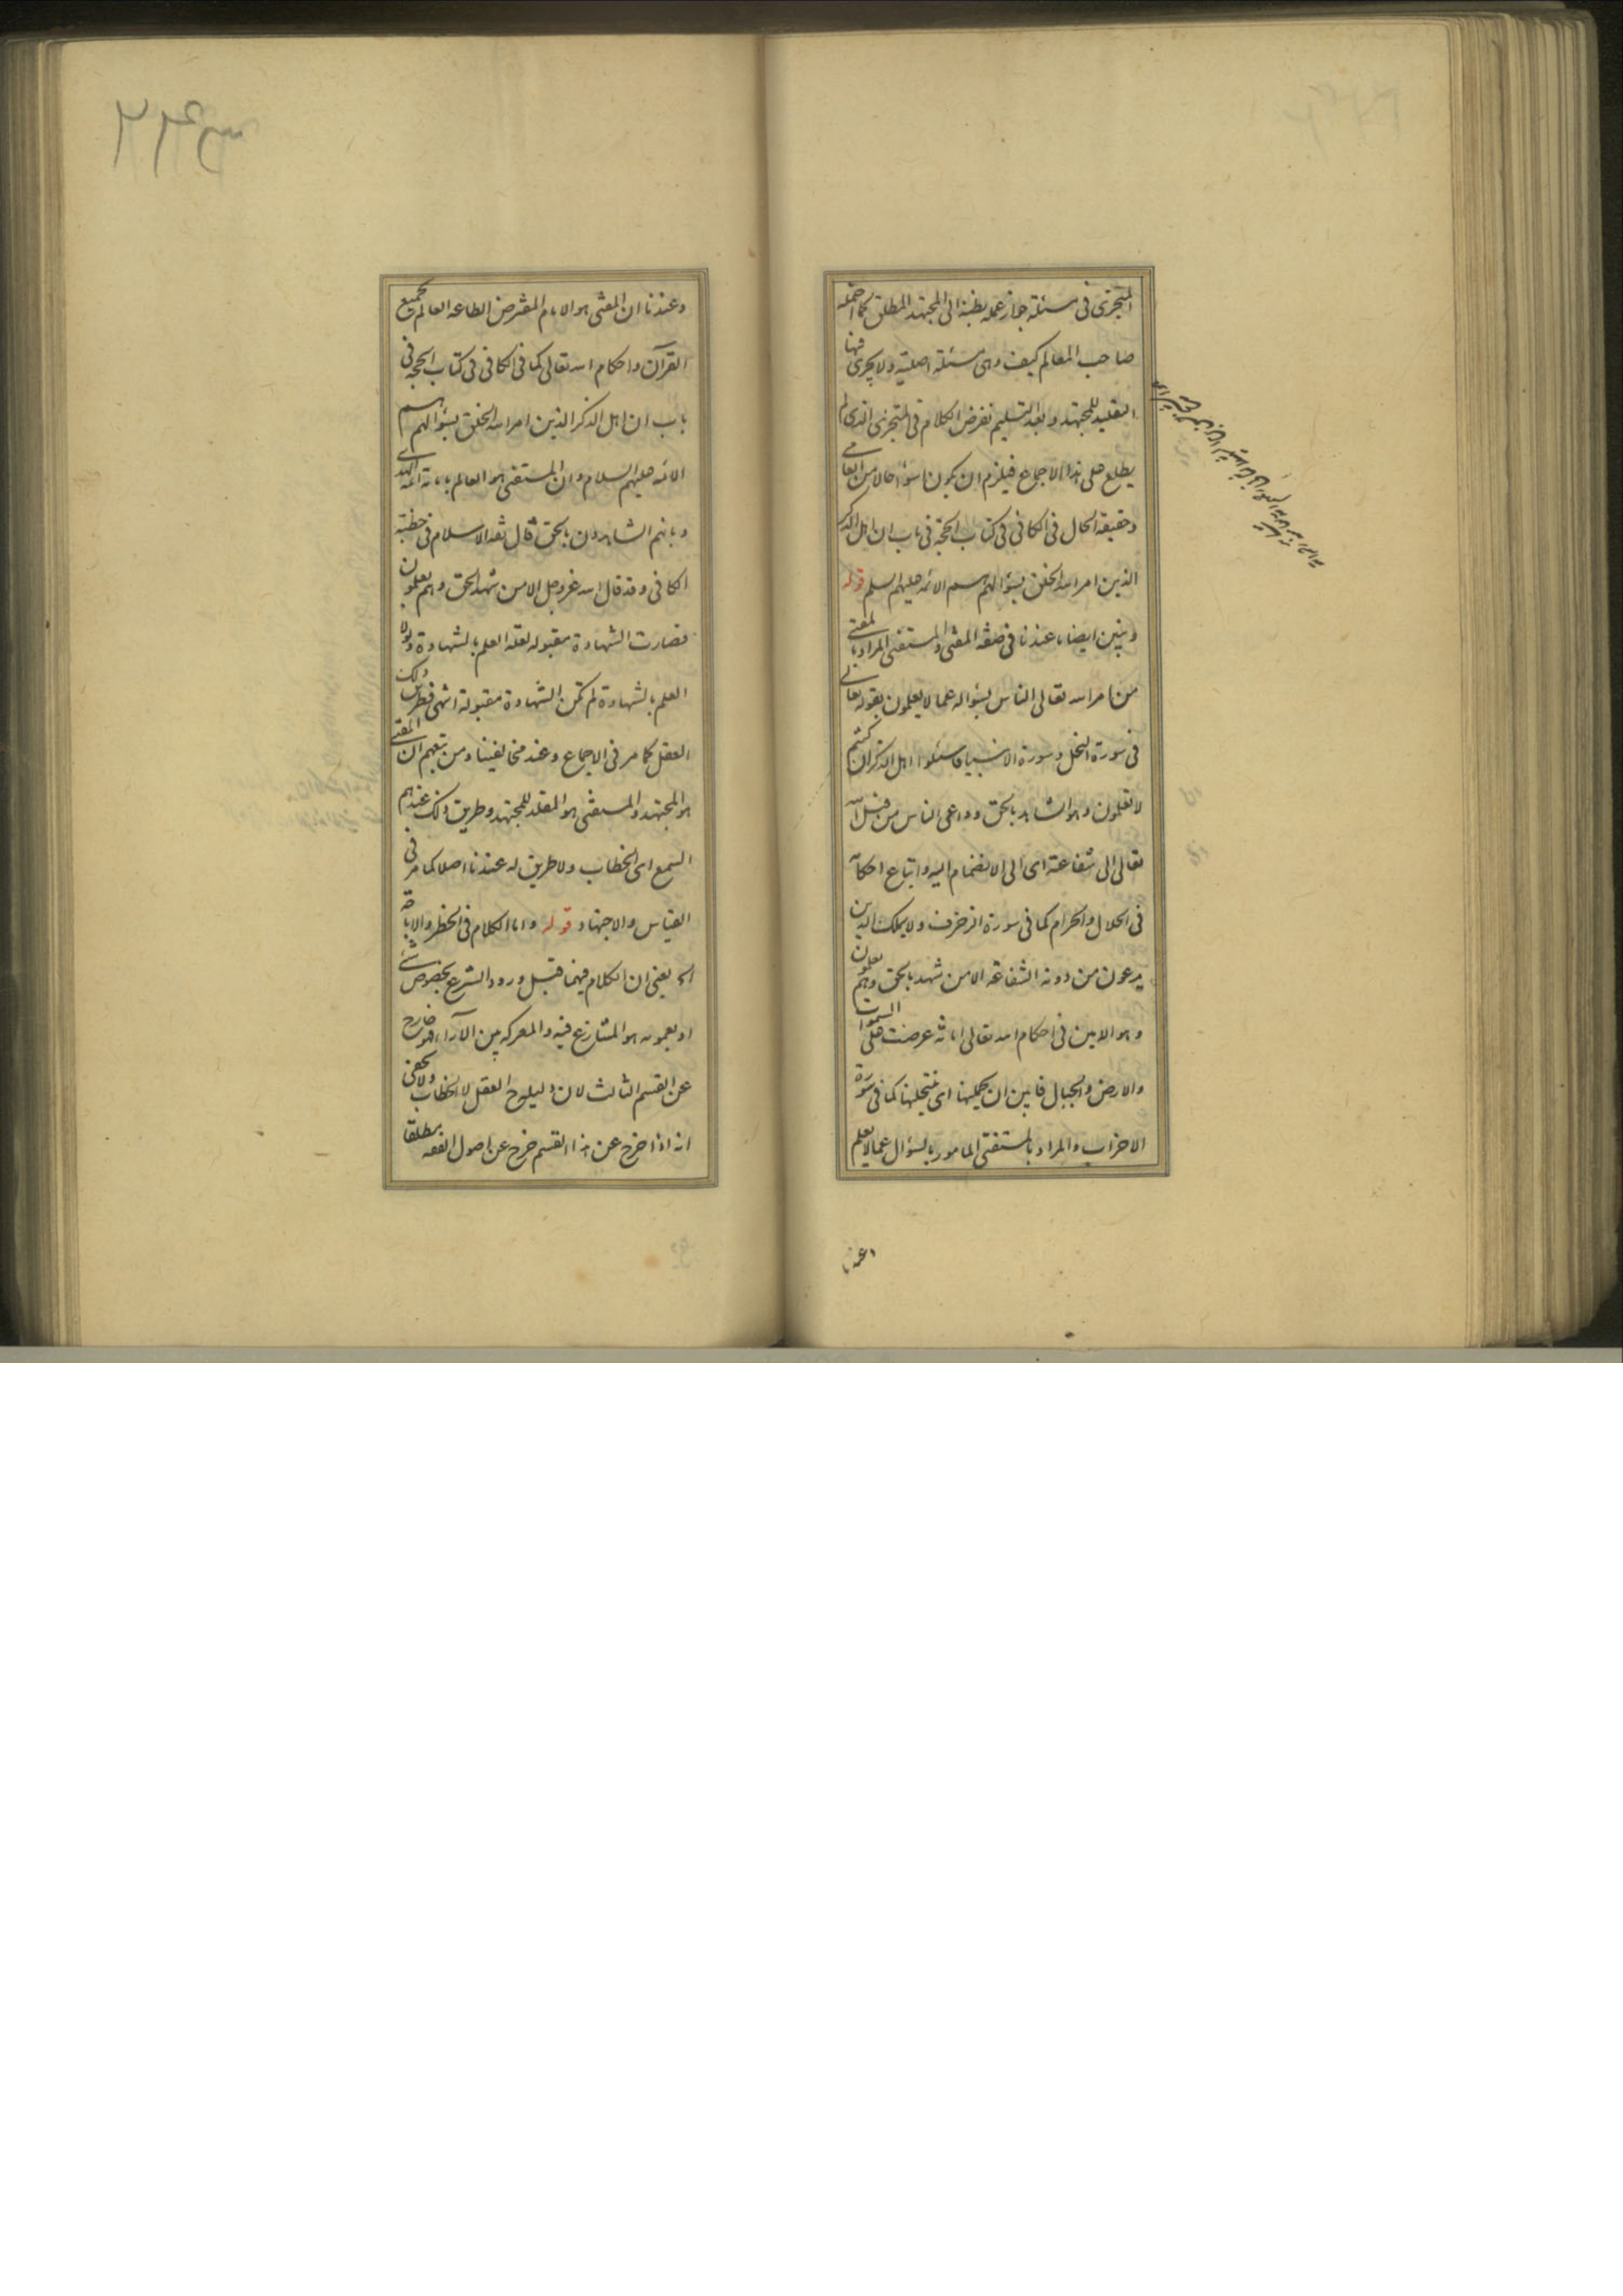 المتجزى فى مسئلة جواز عمله بظنه الى المجتهد المطلق كما احتمله
صاحب المعالم كيف وهى مسئلة اصلية ولا يجرى فيها
التقليد للمجتهد وبعد التسليم نفرض الكلام فى المتجزى الذى لم
يطلع على هذا الاجماع فيلزم ان يكون اسوأ حالا من العامى
وحقيقة الحال فى الكافى فى كتاب الحجة فى باب ان اهل الذكر
الذين امر الله الخلق بسؤالهم هم الائمة عليهم السلم قوله
ونبين ايضا ما عندنا فى صفة المفتى والمستفتى المراد بالمفتى
من امر الله تعالى الناس بسؤاله عما لا يعلمون بقوله تعالى
فى سورة النحل وسورة الانبياء فاسئلوا اهل الذكر ان كنتم
لا تعلمون وهو الشاهد بالحق وداعى الناس من قبل الله
تعالى الى شفاعته اى الى الانضمام اليه واتباع احكامه
فى الحلال والحرام كما فى سورة الزخرف ولا يملك الذين
يدعون من دونه الشفاعة الا من شهد بالحق وهم يعلمون
وهو الامين فى احكام الله تعالى امانة عرضت على السموات
والارض والجبال فابين ان يحملنها اى ينتحلنها كما فى سورة
الاحزاب والمراد بالمستفتى المامور بالسؤال عما لا يعلم
وعندنا
وعندنا ان المفتى هو الامام المفترض الطاعة العالم بجميع
القرآن واحكام الله تعالى كما فى الكافى فى كتاب الحجة فى
باب ان اهل الذكر الذين امر الله الخلق بسؤالهم هم
الائمة عليهم السلام وان المستفتى هو العالم بامامة ائمة الهدى
وبانهم الشاهدون بالحق قال ثقة الاسلام فى خطبة
الكافى وقد قال الله عز وجل الا من شهد بالحق وهم يعلمون
فصارت الشهادة مقبولة لعلة العلم بالشهادة ولولا
العلم بالشهادة لم تكن الشهادة مقبولة انتهى وطريق ذلك
العقل كما مر فى الاجماع وعند مخالفينا ومن تبعهم ان المفتى
هو المجتهد والمستفتى هو المقلد للمجتهد وطريق ذلك عندهم
السمع اى الخطاب ولا طريق له عندنا اصلا كما مر فى
القياس والاجتهاد قوله واما الكلام فى الحظر والاباحة
الخ يعنى ان الكلام فيهما قبل ورود الشرع بخصوص شئ
او بعمومه هو المتنازع فيه والمعركة بين الآراء فهو خارج
عن القسم الثالث لان دليله العقل لا الخطاب ولا يخفى
انه اذا خرج عن هذا القسم خرج عن اصول الفقه مطلقا